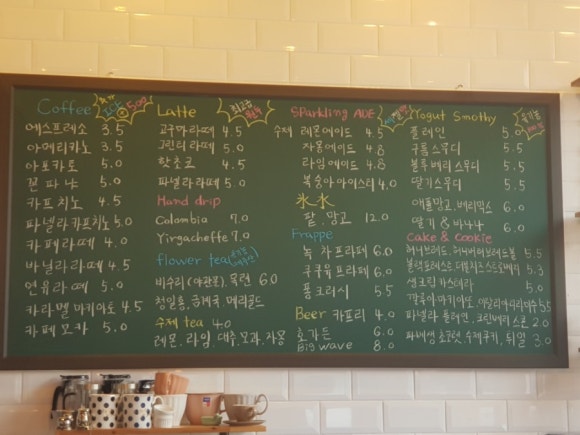 Coffee
에스프레소 3.5
아메리카노 3.5
아포카토 5.0
꼰파냐 5.0
카프치노 4.5
파넬라카프치노 5.0
카페라떼 4.0
바닐라라떼 4.5
연유라떼 5.0
카라멜마키아토 4.5
카페모카 5.0
Latte
고구마라떼 4.5
그린티라떼 5.0
핫쵸코 4.5
파넬라라떼 5.0
Hand drip
Colombia 7.0
Yirgacheffe 7.0
flower tea
비수리(야관문), 목련 6.0
청일홍, 금계국, 메리골드
수제 tea 4.0
레몬, 라임, 대추, 모과, 자몽
Sparkling ADE
수제 레몬에이드 4.5
자몽에이드 4.8
라임에이드 4.8
복숭아아이스티 4.0
氷水
팥, 망고 12.0
Frappe
녹차프라페 6.0
쿠쿠쿠프라페 6.0
퐁크러시 5.5
Beer 카프리 4.0
호가든 6.0
Big wave 8.0
Yogurt Smothy
플레인 5.0
구름스무디 5.5
블루베리스무디 5.5
딸기스무디 5.5
애플망고, 베리믹스 6.0
딸기 & 바나나 6.0
Cake & Cookie
허니브레드, 허니버터브레드볼 5.5
블랙포레스트, 더블치즈스트로베리 5.3
생크림카스테라 5.0
깔루아마키아토, 이탈리아티라미수 5.5
파넬라, 플레인, 크린베리스콘 2.0
파베생초코렛, 수제쿠키, 휘낭 3.0